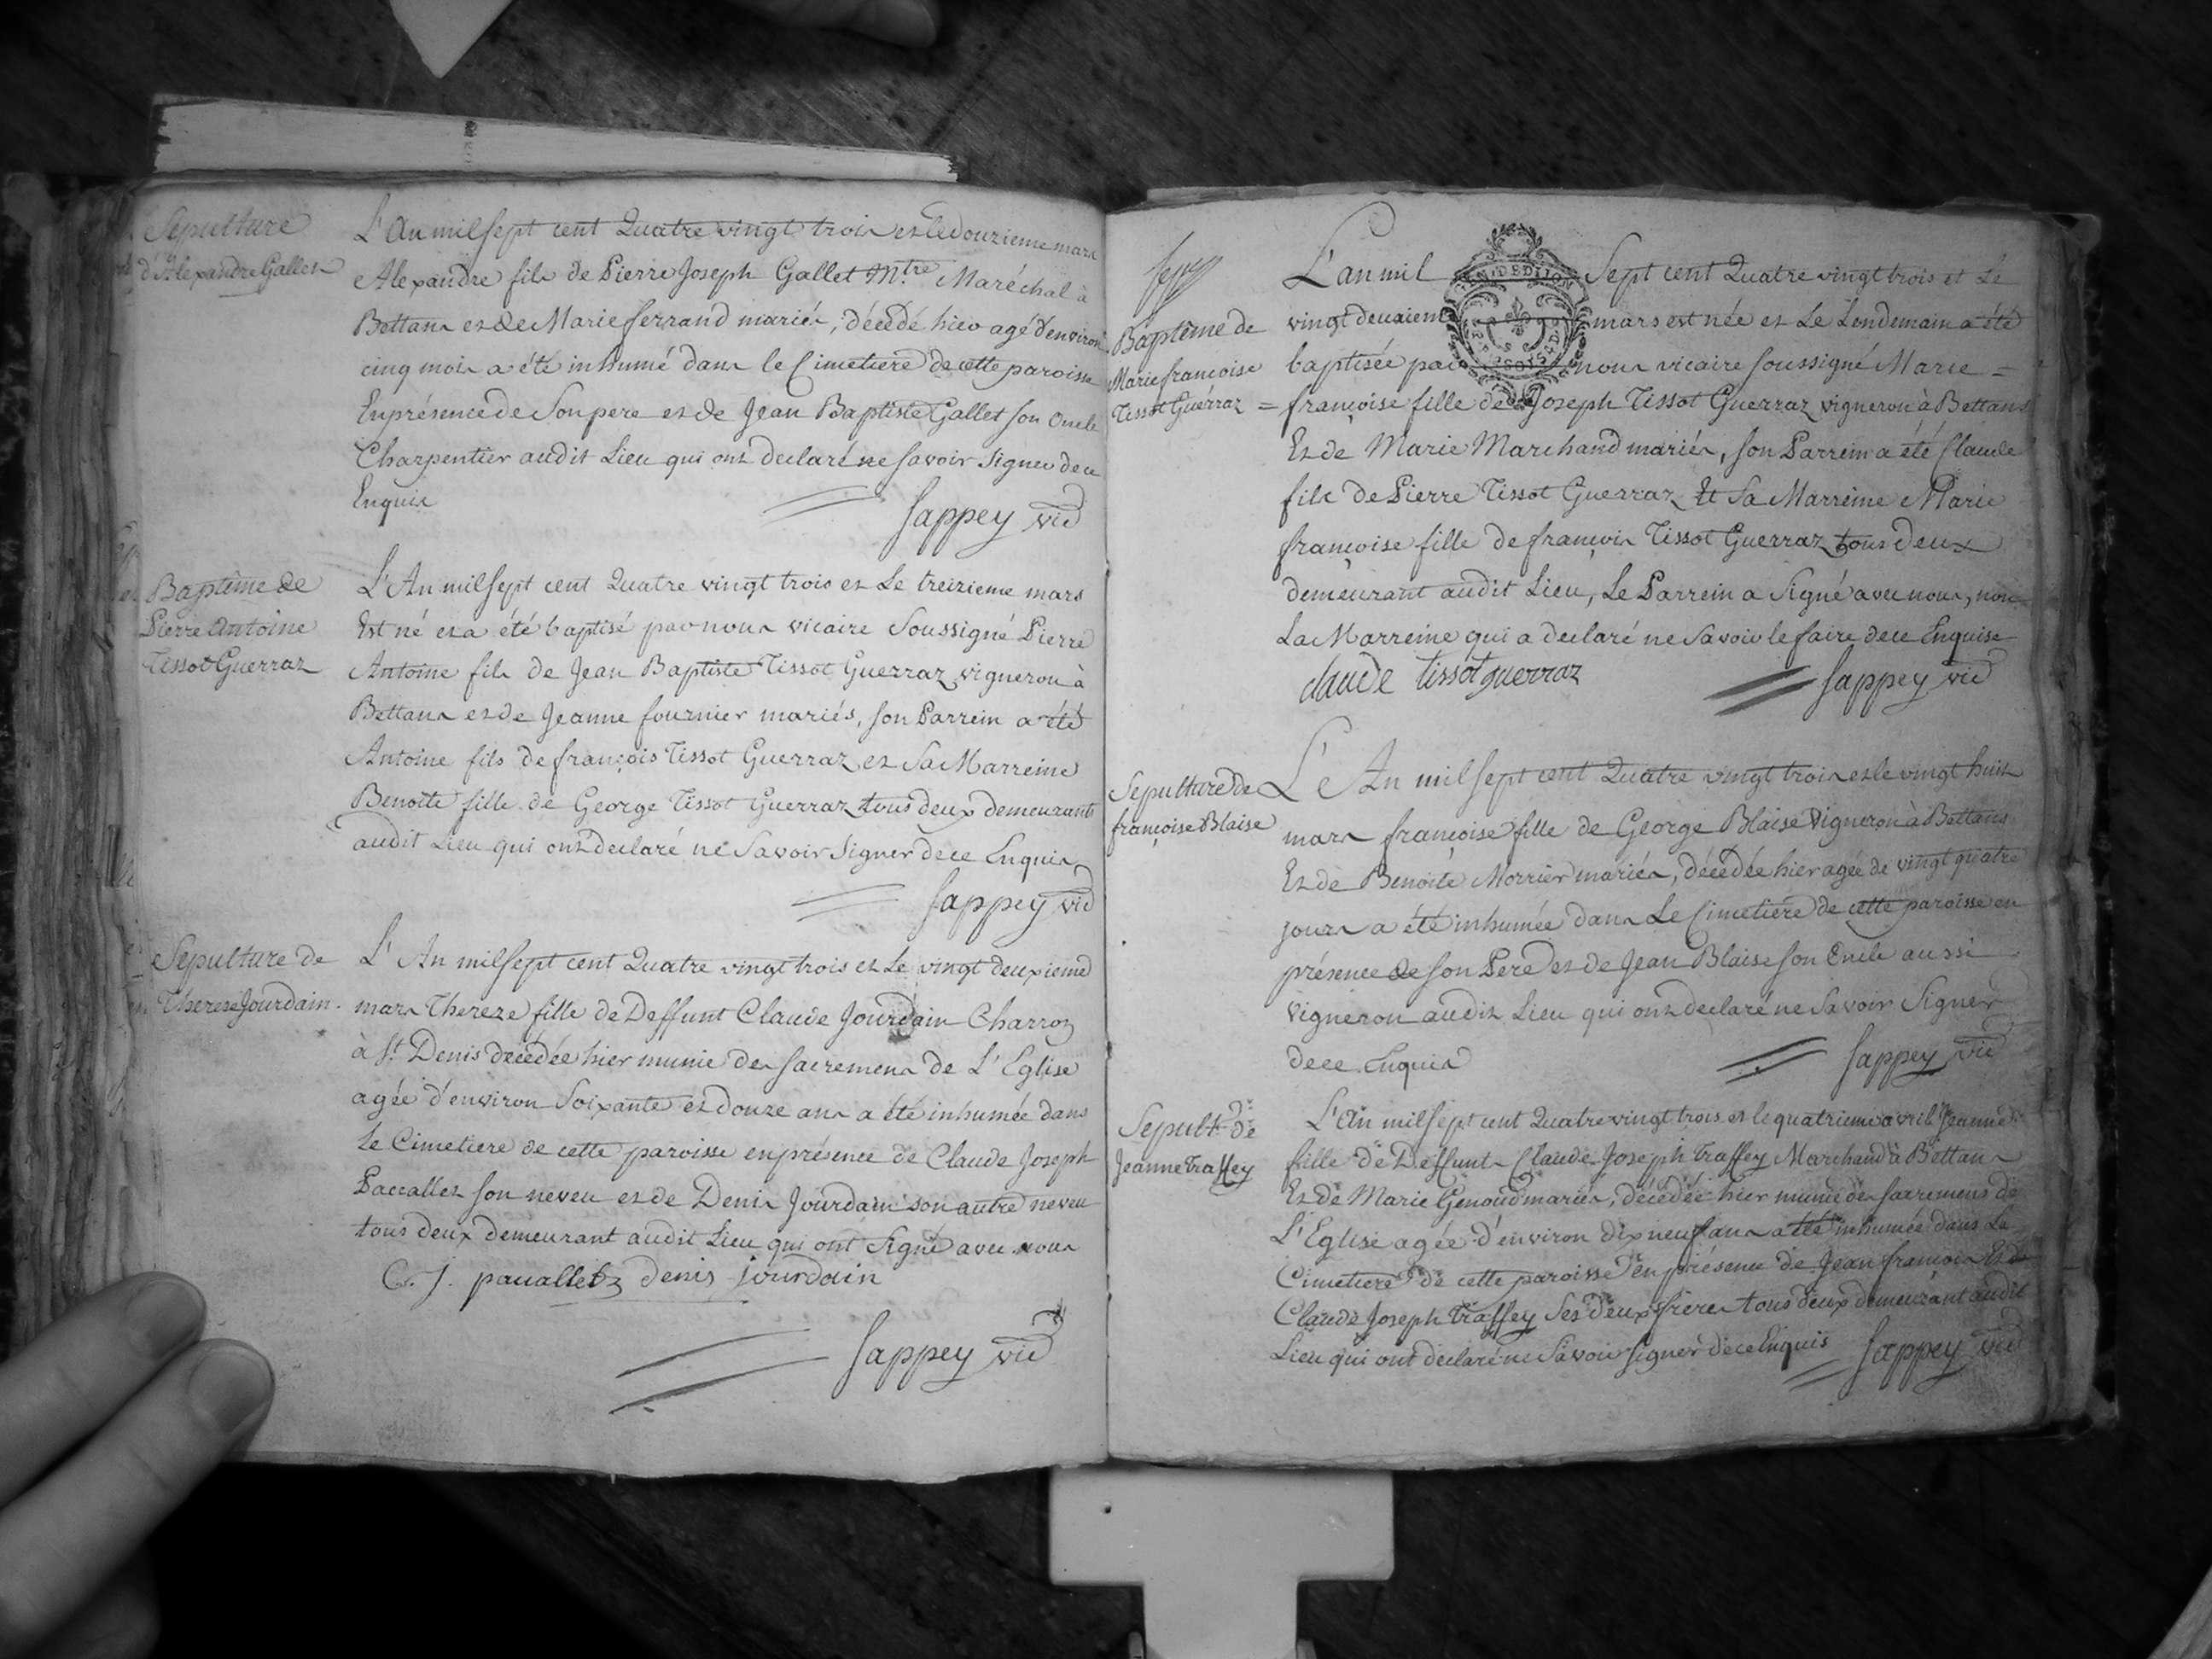 Sepulture
d'Alexandre Gallet
L'An mil sept cent Quatre vingt trois et le douzieme mars
Alexandre fils de Pierre Joseph Gallet Mtre Maréchal à
Bettans et de Marie ferrand mariés, décédé hier agé d'environ
cinq mois a été inhumé dans le Cimetiere de cette paroisse
En présence de Son pere et de Jean Baptiste Gallet son oncle
Charpentier audit Lieu qui ont declaré ne savoir signer de ce
Enquis
Sappey vic
Baptême de
Pierre Antoine
Tissot Guerraz
L'An mil sept cent Quatre vingt trois et Le treizieme mars
Est né et a été baptisé par nous vicaire Soussigné Pierre
Antoine fils de Jean Baptiste Tissot Guerraz vigneron à
Bettans et de Jeanne fournier mariés, son Parrein a été
Antoine fils de françois Tissot Guerraz et Sa Marreine
Benoite fille de George Tissot Guerraz tous deux demeurants
audit Lieu qui ont declaré ne Savoir Signer de ce Enquis
Sappey vic
Sepulture de
Therese Jourdain
L'An mil sept cent Quatre vingt trois et Le vingt deuxieme
mars Thereze fille de Deffunt Claude Jourdain Charron
à St Denis décédée hier munie des sacremens de L'Eglise
agée d'environ Soixante et douze ans a été inhumée dans
Le Cimetiere de cette paroisse en présence de Claude Joseph
Paccallet son neveu et de Denis Jourdain son autre neveu
tous deux demeurant audit Lieu qui ont Signé avec nous
C. J. pacallet denis jourdain
Sappey vic
Baptême de
Marie francoise
Tissot Guerraz =
L'an mil Sept cent Quatre vingt trois et Le
vingt deuxieme mars est née et Le Lendemain a été
baptisée par nous vicaire soussigné Marie =
françoise fille de Joseph Tissot Guerraz vigneron à Bettans
Et de Marie Marchand mariés, son Parrein a été Claude
fils de Pierre Tissot Guerraz Et Sa Marreine Marie
françoise fille de francois Tissot Guerraz tous deux
demeurant audit Lieu, Le Parrein a Signé avec nous, non
La Marreine qui a declaré ne Savoir le faire de ce Enquise
claude tissot guerraz
Sappey vic
Sepulture de
françoise Blaise
L'An mil sept cent Quatre vingt trois et le vingt huit
mars françoise fille de George Blaise Vigneron à Bettans
Et de Benoite Morrier mariés, décédée hier agée de vingt quatre
jours a été inhumée dans Le Cimetiere de cette paroisse en
présence de son Pere et de Jean Blaise son Oncle aussi
vigneron audit Lieu qui ont declaré ne Savoir Signer
de ce Enquis
Sappey vic
Sepult de
Jeanne Traffey
L'An mil sept cent Quatre vingt trois et le quatrieme avril Jeanne
fille de Deffunt Claude Joseph Traffey Marchand à Bettans
Et de Marie Genoud mariés, décédée hier munie des sacremens de
L'Eglise agée d'environ dix neuf ans a été inhumée dans Le
Cimetiere de cette paroisse en présence de Jean francois Et de
Claude Joseph Traffey Ses deux freres tous deux demeurant audit
Lieu qui ont declaré ne Savoir signer de ce Enquis Sappey vic